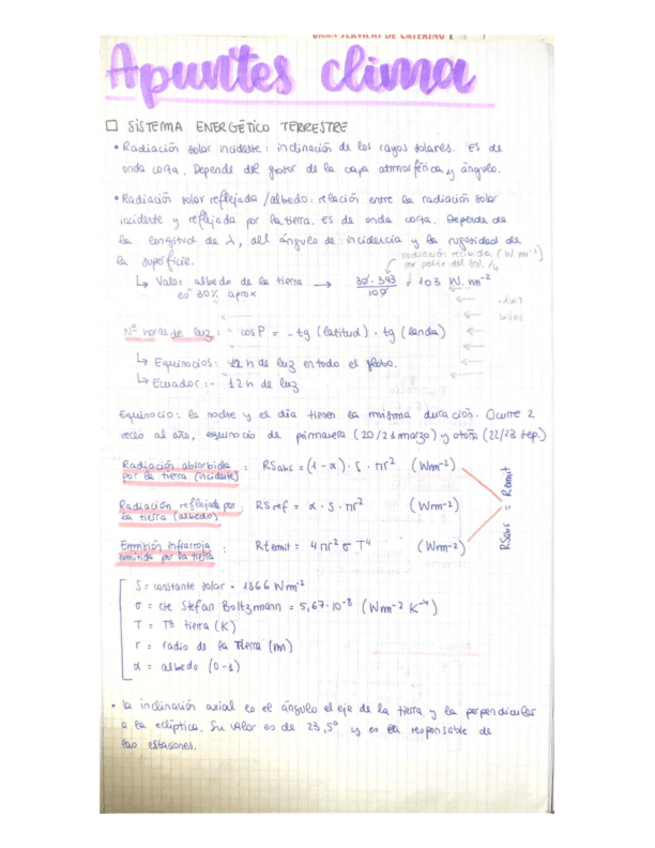 GRAN SERVICIO DE CATERING
Apuntes clima
SISTEMA ENERGÉTICO TERRESTRE
• Radiación solar incidente: inclinación de los rayos solares. Es de
onda corta. Depende del grosor de la capa atmosférica y ángulo.
• Radiación solar reflejada / albedo: relación entre la radiación solar
incidente y reflejada por la tierra. Es de onda corta. Depende de
la longitud de λ, del ángulo de incidencia y la rugosidad de
la superficie.
radiación recibida (W m⁻²)
por parte del sol/4
↳ Valor albedo de la tierra → 30·343/100 = 103 W.m⁻²
es 30% aprox
Nº horas de luz: - cosP = -tg (latitud) · tg (landa)
↳ Equinocios: 12 h de luz en todo el globo.
↳ Ecuador: - 12h de luz
Equinocio: la noche y el día tienen la misma duración. Ocurre 2
veces al año, equinocio de primavera (20/21 marzo) y otoño (22/23 sep.)
Radiación absorbida por la tierra (incidente) : RSabs = (1-α)·S·πr² (Wm⁻²)
Radiación reflejada por la tierra (albedo) : RSref = α·S·πr² (Wm⁻²)
Emisión infrarroja emitida por la tierra : Rtemit = 4πr²σT⁴ (Wm⁻²)
RSabs = Remit
S = constante solar = 1366 Wm⁻²
σ = cte Stefan Boltzmann = 5,67·10⁻⁸ (Wm⁻² K⁻⁴)
T = Tª tierra (K)
r = radio de la Tierra (m)
α = albedo (0-1)
• la inclinación axial es el ángulo el eje de la tierra y la perpendicular
a la eclíptica. Su valor es de 23,5º y es la responsable de
las estaciones.